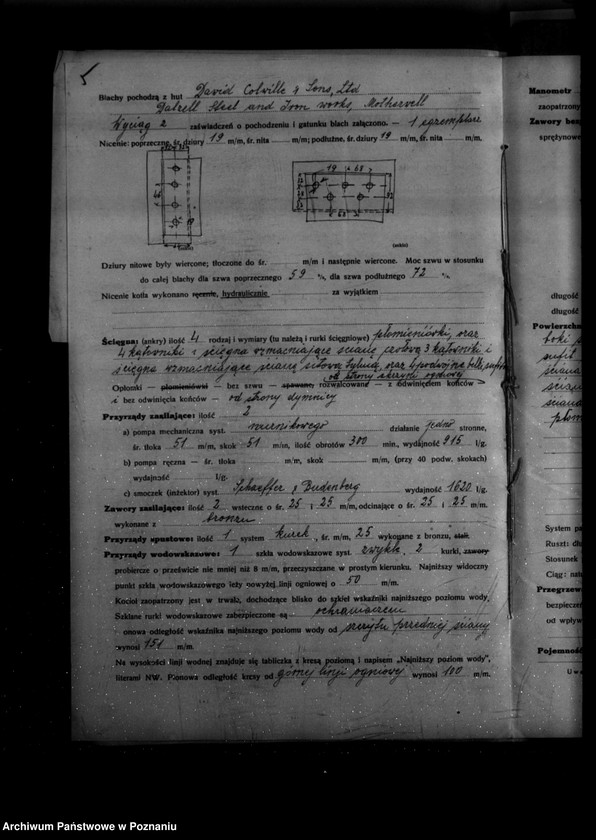 5
Blachy pochodzą z hut David Colville & Sons, Ltd
Dalzell Steel and Iron works, Motherwell
Wyciąg 2 zaświadczeń o pochodzeniu i gatunku blach załączono. — 1 egzemplarz
Nicenie: poprzeczne, śr. dziury 19 m/m, śr. nita m/m; podłużne, śr. dziury 19 m/m, śr. nita m/m.
19 68
68
(szkic) (szkic)
Dziury nitowe były wiercone; tłoczone do śr. m/m i następnie wiercone. Moc szwu w stosunku
do całej blachy dla szwa poprzecznego 59 %, dla szwa podłużnego 72 %
Nicenie kotła wykonano ręcznie, hydraulicznie za wyjątkiem
Ścięgna: (ankry) ilość 4 rodzaj i wymiary (tu należą i rurki ścięgniowe) płomieniówki, oraz
4 kątowniki i ścięgna wzmacniające ścianę czołową 3 kątowniki i
ścięgna wzmacniające ścianę sitową tylną, oraz 4 podwójne belki
od strony skrzyni ogniowej
Opłonki — płomieniówki — bez szwu — spawane, rozwalcowane — z odwinięciem końców
i bez odwinięcia końców — od strony dymnicy
Przyrządy zasilające: ilość 2
a) pompa mechaniczna syst. nurnikowego działanie jedno stronne,
śr. tłoka 51 m/m, skok 51 m/m, ilość obrotów 300 min., wydajność 915 l/g.
b) pompa ręczna — śr. tłoka m/m, skok m/m, (przy 40 podw. skokach)
wydajność l/g.
c) smoczek (inżektor) syst. Schaeffer & Budenberg wydajność 1620 l/g.
Zawory zasilające: ilość 2 wsteczne o śr. 25 i 25 m/m, odcinające o śr. 25 i 25 m/m.
wykonane z bronzu
Przyrządy spustowe: ilość 1 system kurek, śr. m/m, 25 wykonane z bronzu, stali.
Przyrządy wodowskazowe: 1 szkła wodowskazowe syst. zwykłe, 2 kurki, zawory
probiercze o prześwicie nie mniej niż 8 m/m, przeczyszczane w prostym kierunku. Najniższy widoczny
punkt szkła wodowskazowego leży powyżej linji ogniowej o 50 m/m.
Kocioł zaopatrzony jest w trwałe, dochodzące blisko do szkieł wskaźniki najniższego poziomu wody
Szklane rurki wodowskazowe zabezpieczone są ochraniaczem
onowa odległość wskaźnika najniższego poziomu wody od szczytu przedniej ściany
wynosi 151 m/m.
Na wysokości linji wodnej znajduje się tabliczka z kresą poziomą i napisem „Najniższy poziom wody",
literami NW. Pionowa odległość kresy od górnej linji ogniowej wynosi 100 m/m.
Manometr
zaopatrzony
Zawory bez
sprężynowe
długość
długość
Powierzchn
System pa
Ruszt: dłu
Stosunek
Ciąg: natu
Przegrzew
bezpieczeń
od wpływ
Pojemność
Archiwum Państwowe w Poznaniu